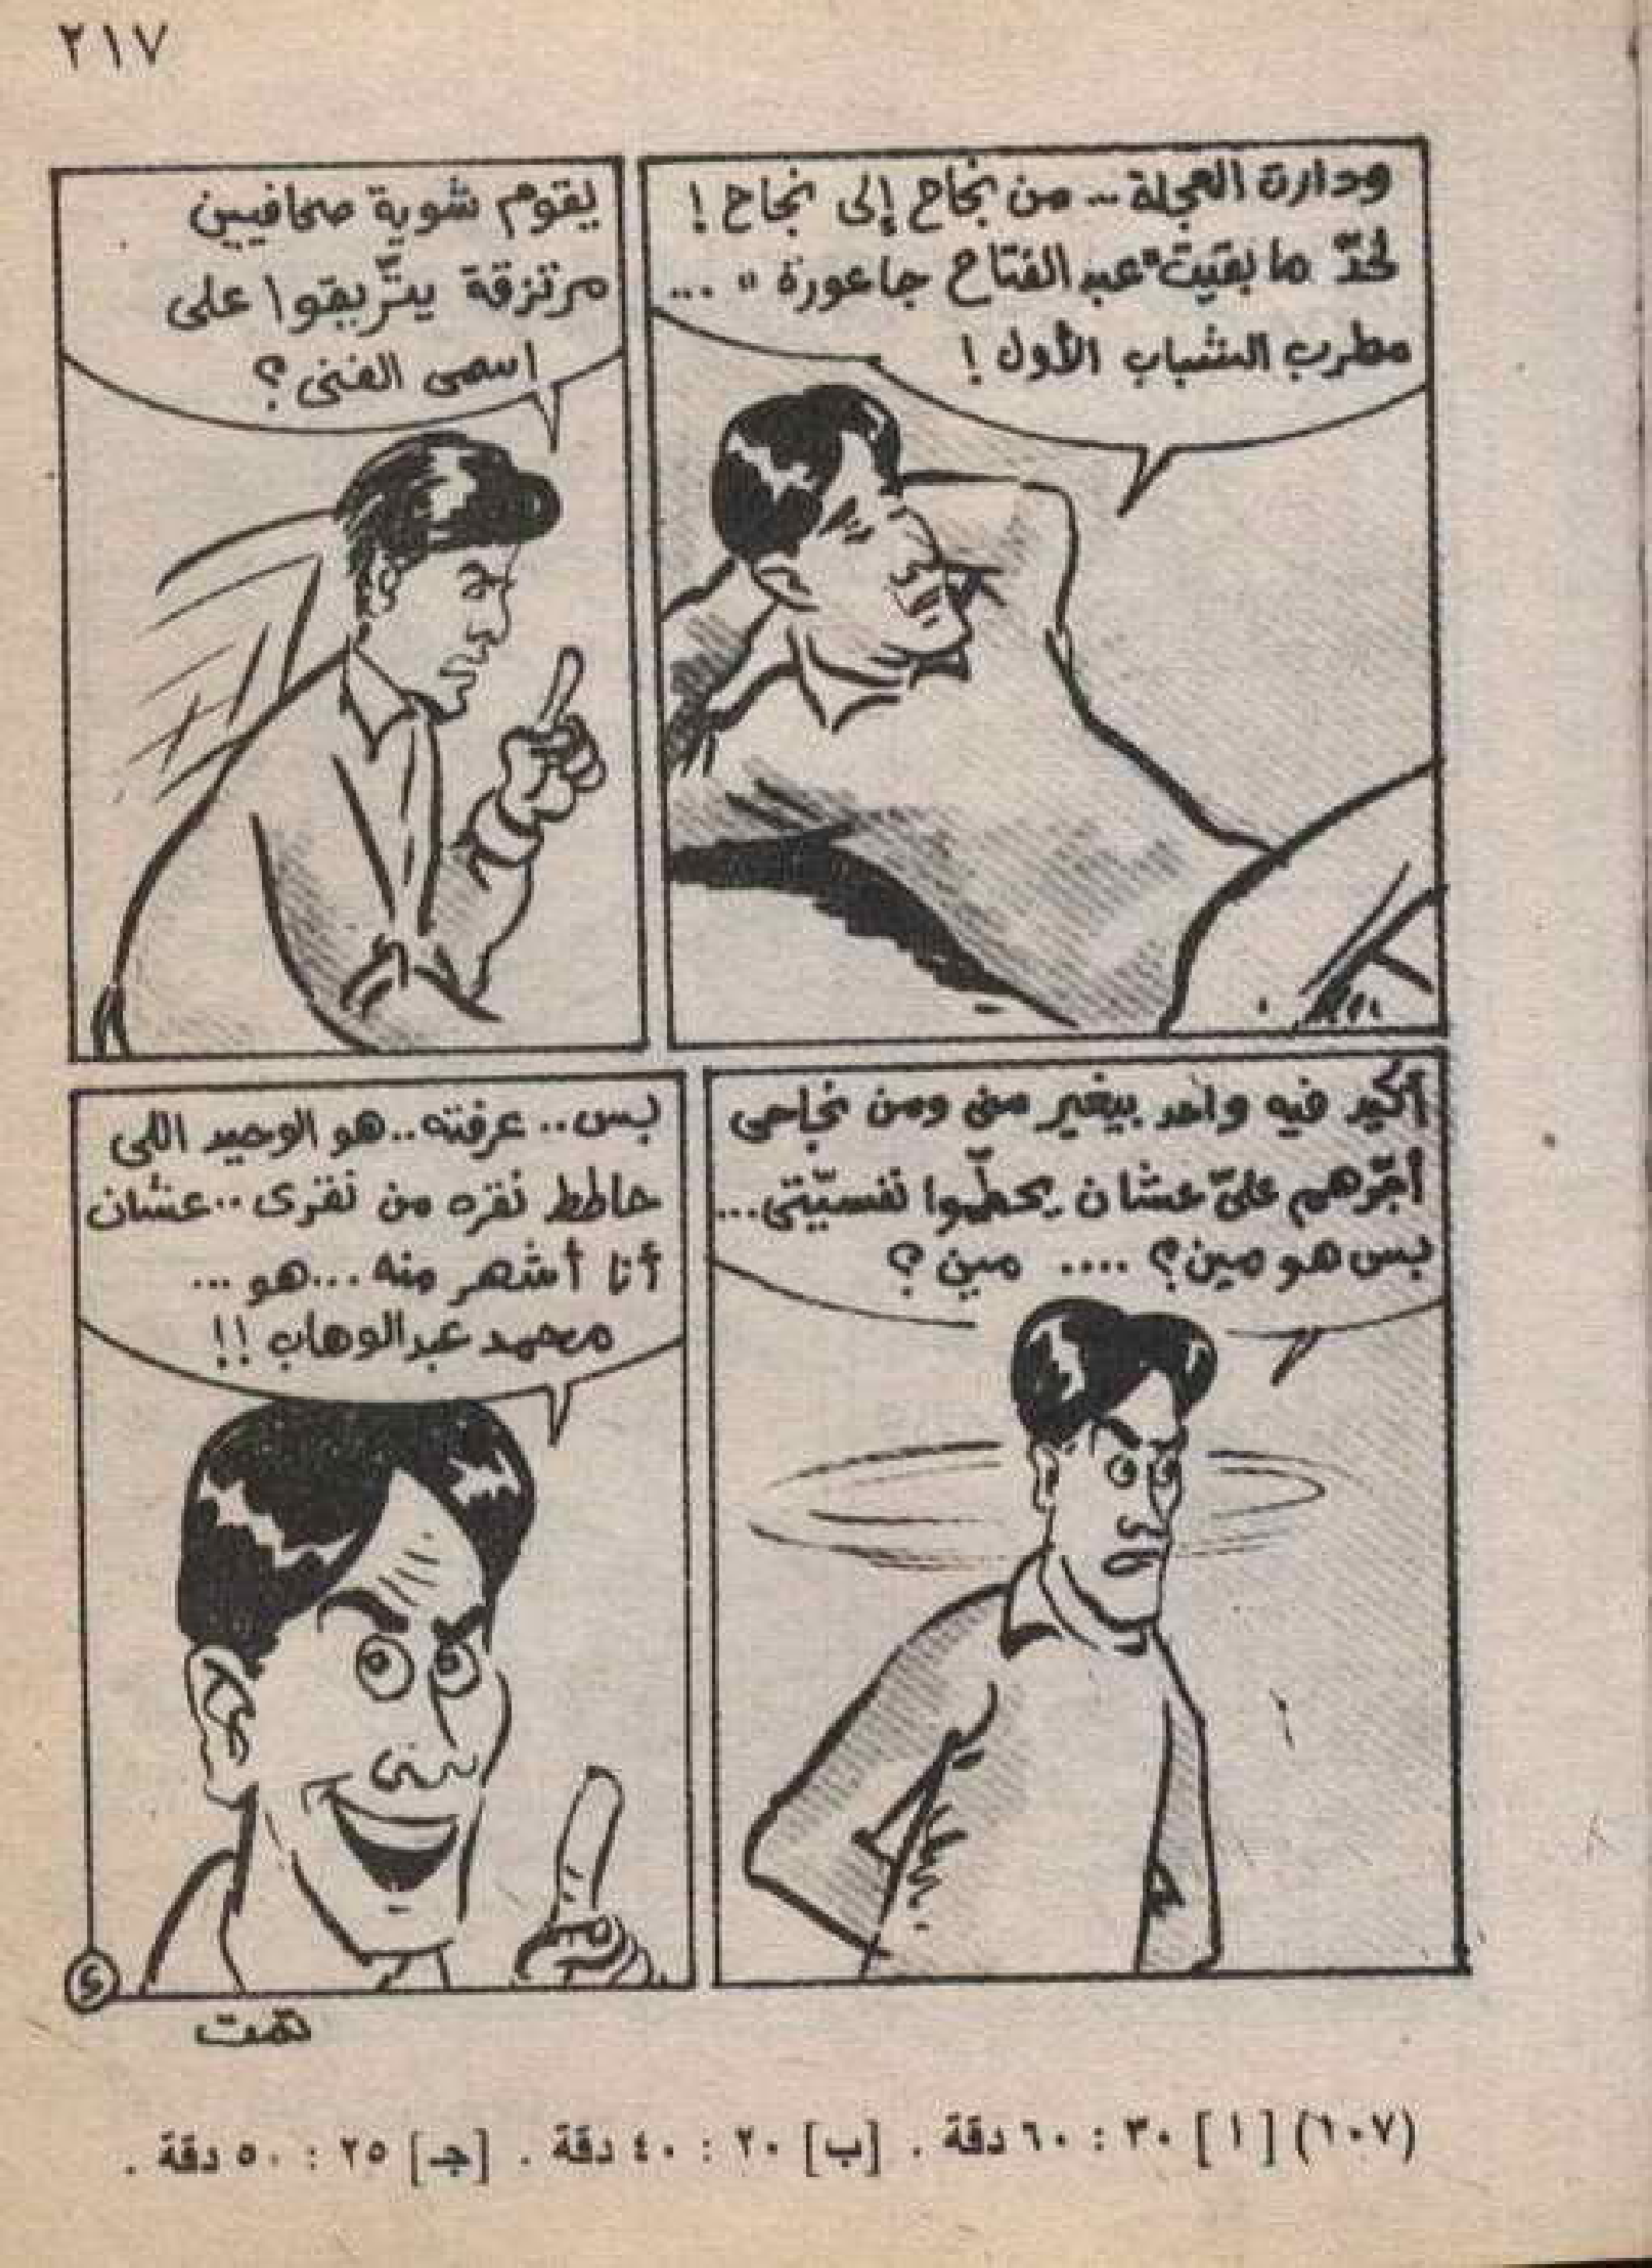 ٢١٧
ودارت العجلة .. من نجاح إلى نجاح !
لحدّ ما بقيت "عبد الفتاح جاعورة" ...
مطرب الشباب الأول !
يقوم شوية صحافيين
مرتزقة يتّريقوا على
اسمى الفنى ؟
أكيد فيه واحد بيغير منى ومن نجاحى
أجّرهم علىّ عشان يحطّموا نفسيّتى ...
بس هو مين ؟ .... مين ؟
بس .. عرفته .. هو الوحيد اللى
حاطط نقره من نقرى .. عشان
أنا أشهر منه ... هو ...
محمد عبد الوهاب !!
تمّت
(١٠٧) [ ا ] ٣٠ : ٦٠ دقة . [ب] ٢٠ : ٤٠ دقة . [جـ] ٢٥ : ٥٠ دقة .